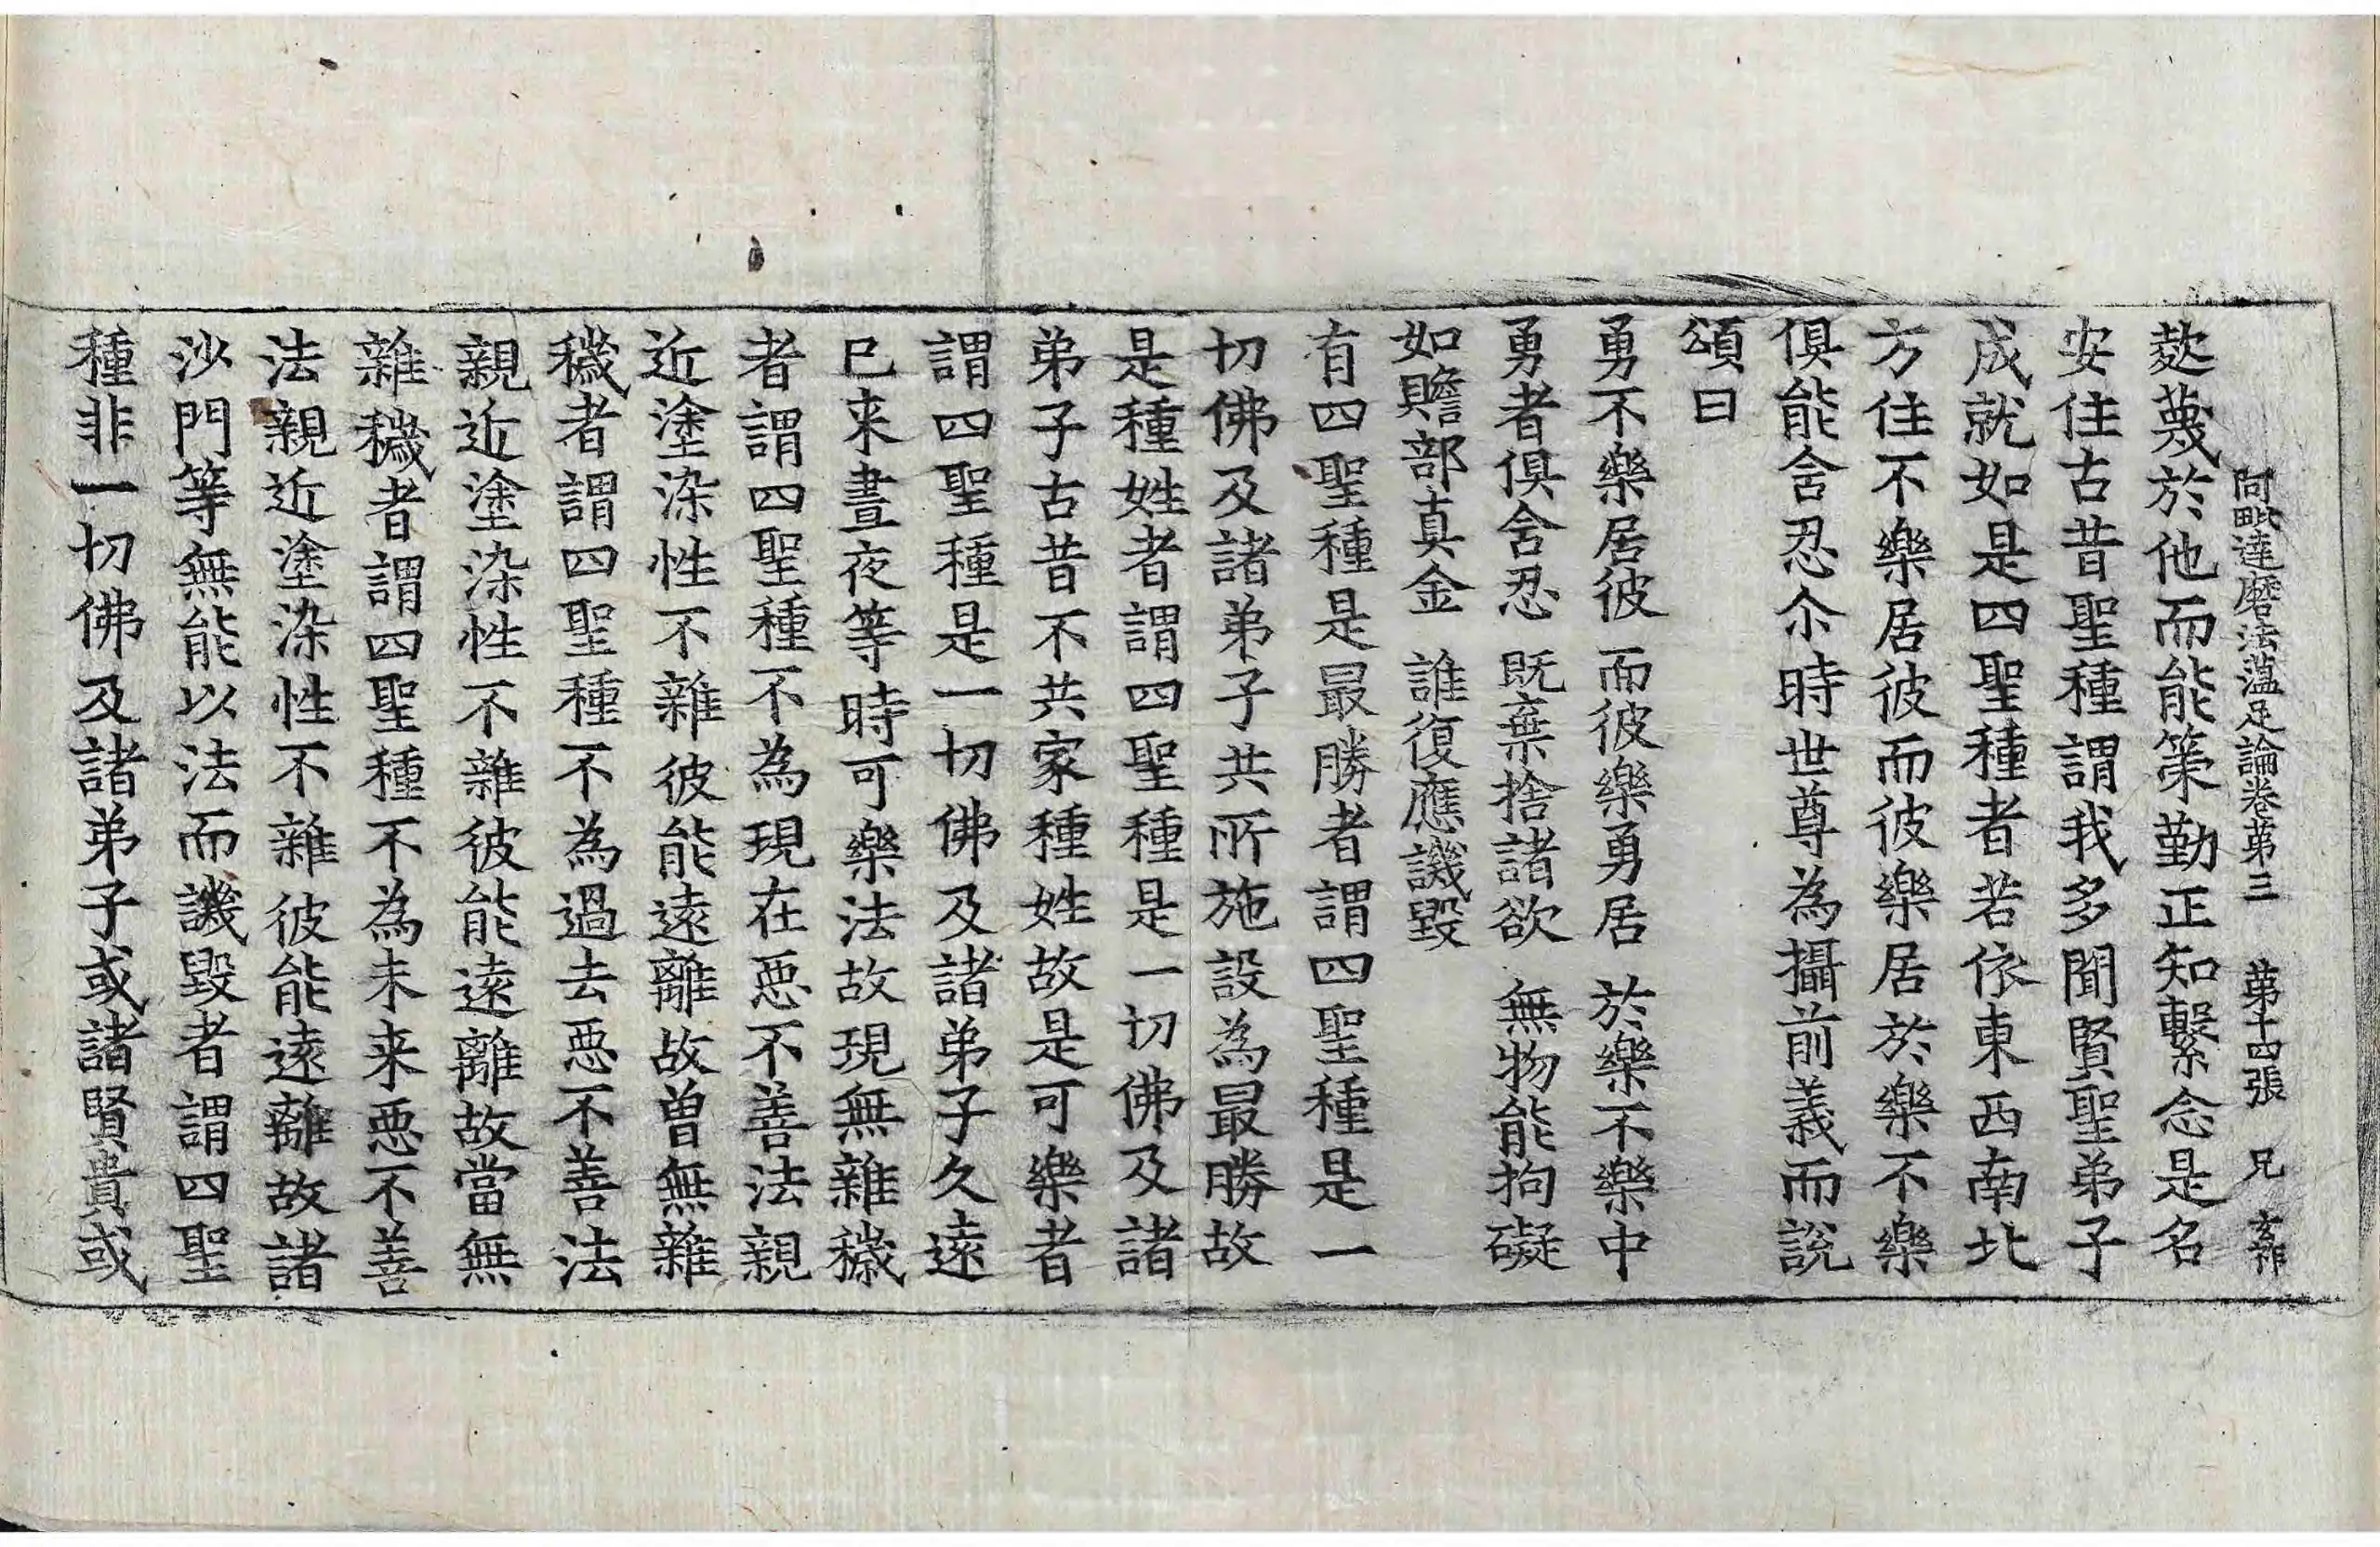 阿毗達磨法蘊足論卷第三　第十四張　兄
懱於他而能策勤正知繫念是名
安住古昔聖種謂我多聞賢聖弟子
成就如是四聖種者若依東西南北
方住不樂居彼而彼樂居於樂不樂
俱能含忍尒時世尊為攝前義而說
頌曰
勇不樂居彼　而彼樂勇居　於樂不樂中
勇者俱含忍　既棄捨諸欲　無物能拘礙
如贍部真金　誰復應譏毀
有四聖種是最勝者謂四聖種是一
切佛及諸弟子共所施設為最勝故
是種姓者謂四聖種是一切佛及諸
弟子古昔不共家種姓故是可樂者
謂四聖種是一切佛及諸弟子久遠
已来晝夜等時可樂法故現無雜穢
者謂四聖種不為現在惡不善法親
近塗染性不雜彼能遠離故曾無雜
穢者謂四聖種不為過去惡不善法
親近塗染性不雜彼能遠離故當無
雜穢者謂四聖種不為未来惡不善
法親近塗染性不雜彼能遠離故諸
沙門等無能以法而譏毀者謂四聖
種非一切佛及諸弟子或諸賢貴或